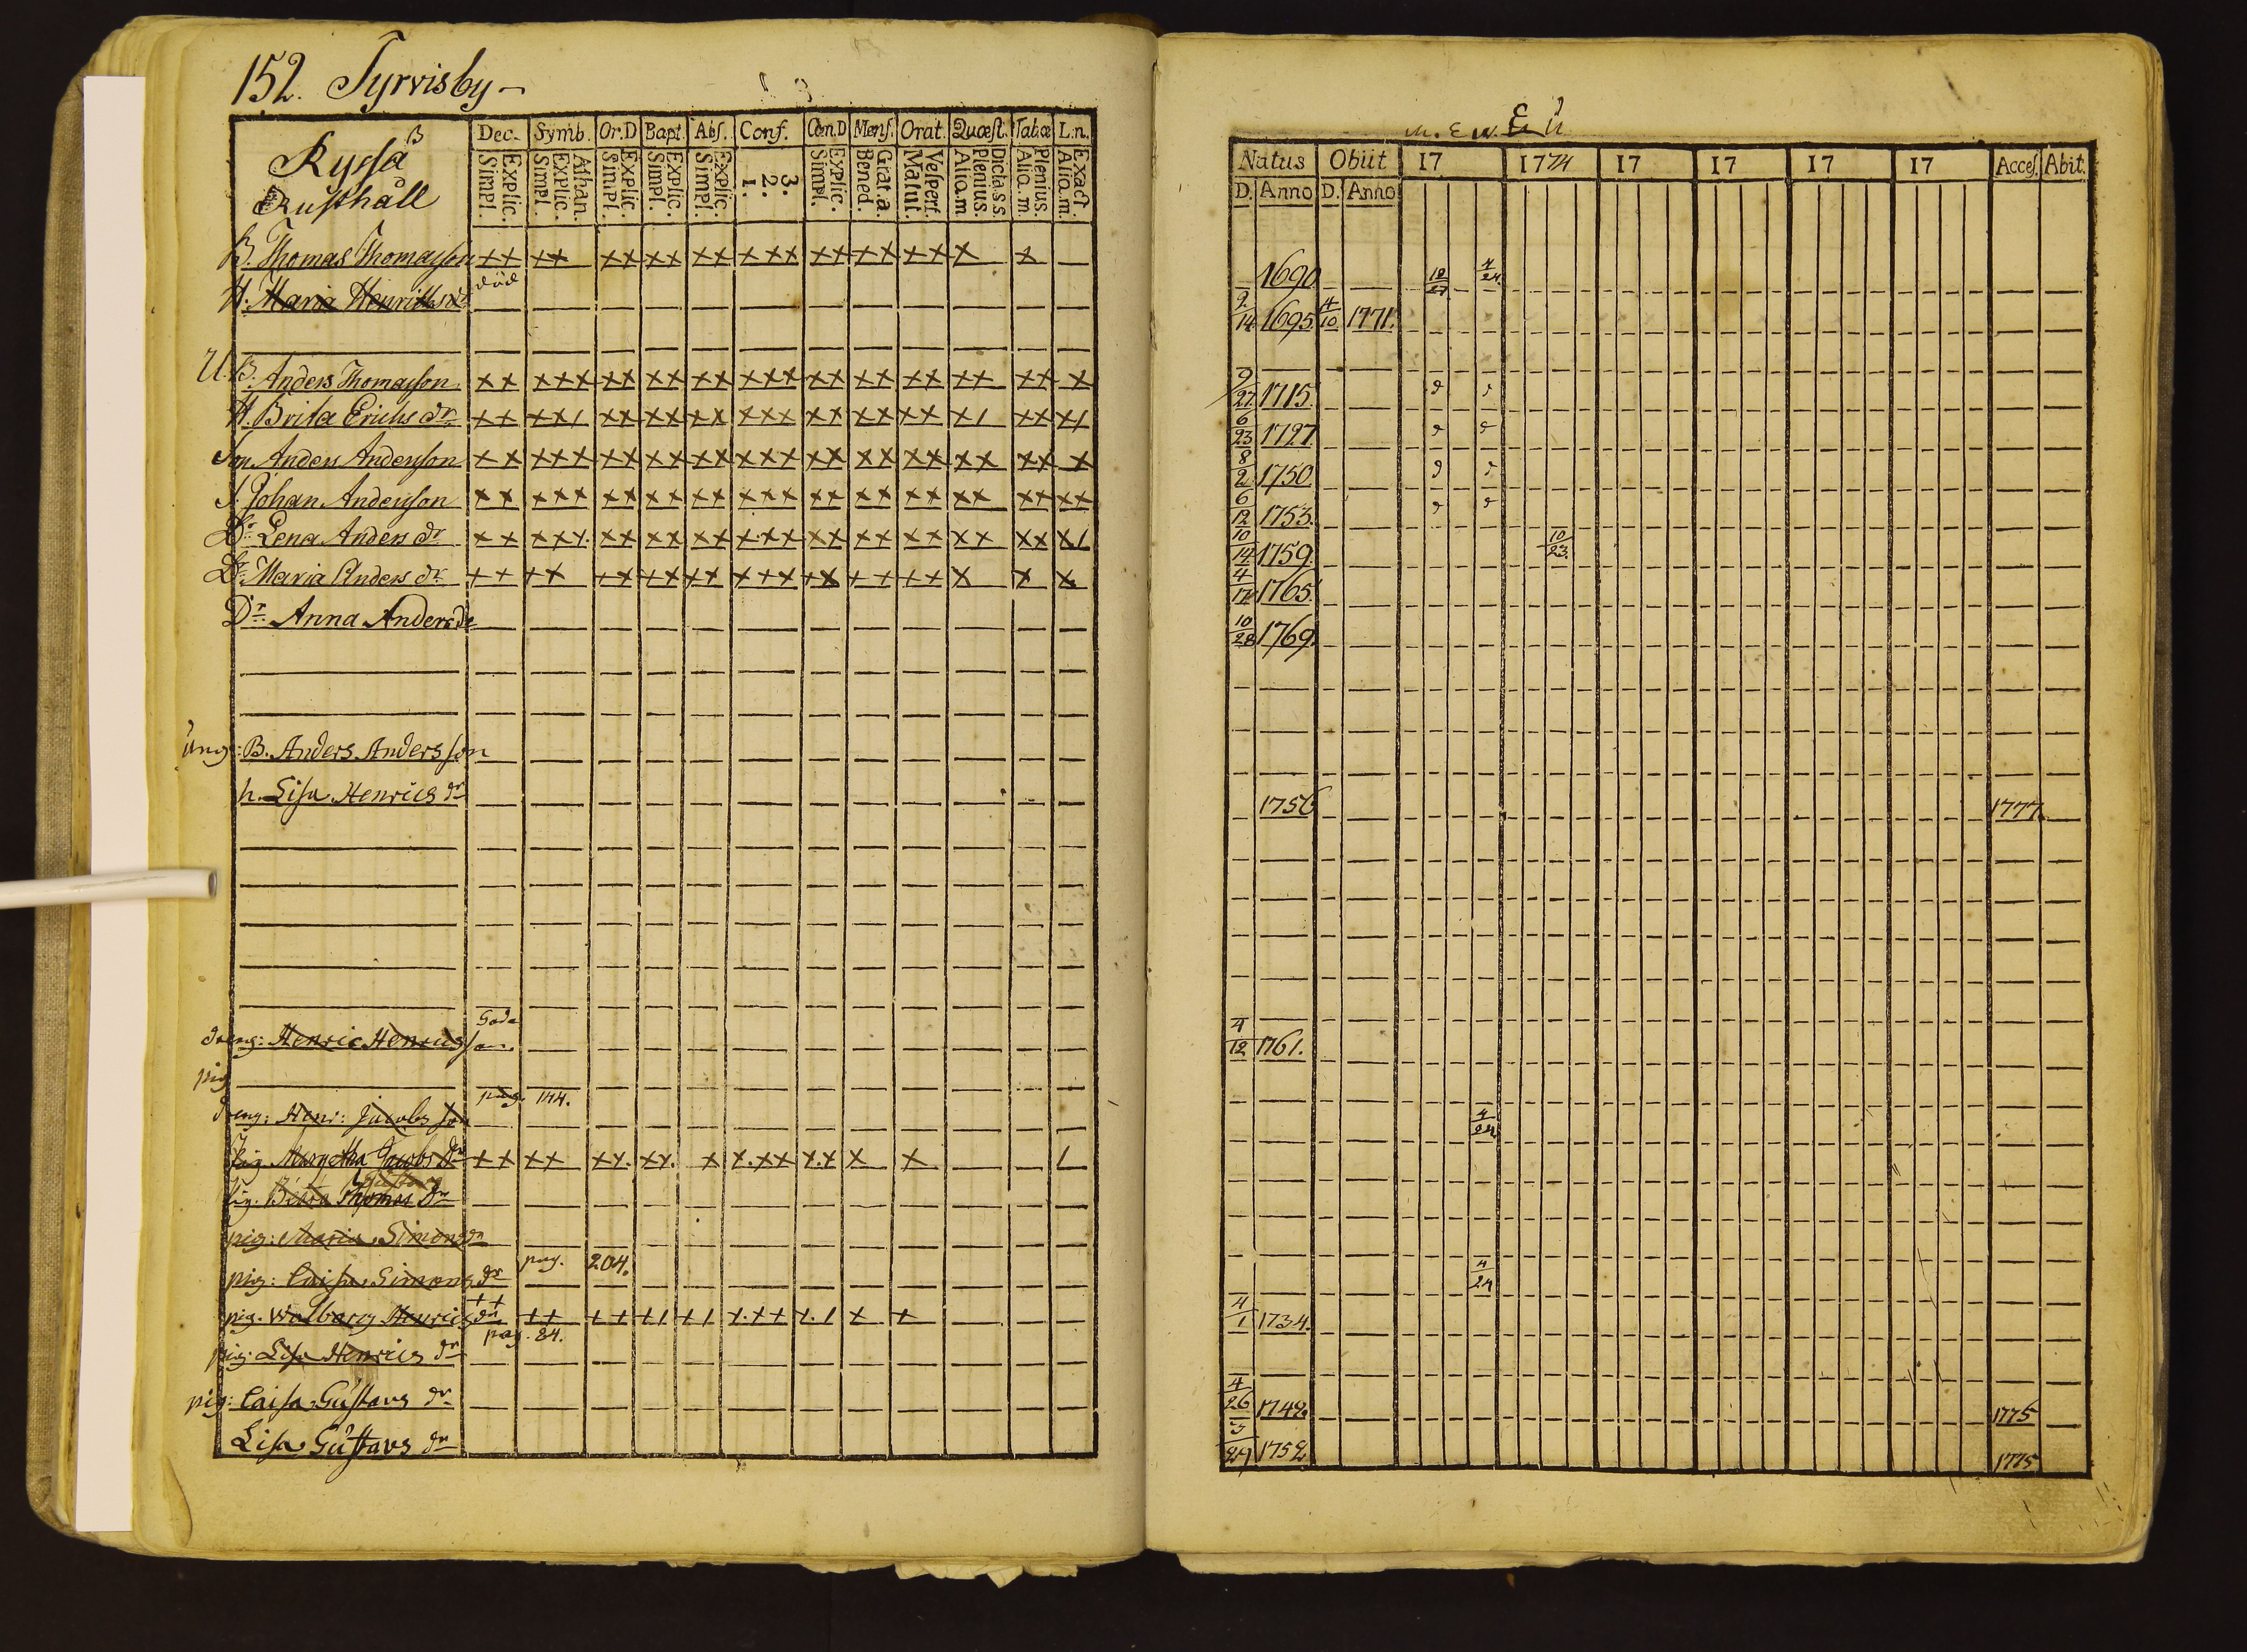 152. Tyrvisby
Dec. Symb. Or.D Bapt. Abſ. Conf. Cœn.D Menſ. Orat. Quæſt. Tab.œ L.n.
Simpl. Explic. Simpl. Explic. Athan. Simpl. Explic. Simpl. Explic. Simpl. Explic. 1. 2. 3. Simpl. Explic. Bened. Grat.a. Matut. Veſpert. Aliq.m Plenius. Dicta s.s. Aliq.m. Plenius. Aliq.m. Exact.
Ryſsä B
Rusthåll
B. Thomas Thomasson ×× ×× ×× ×× ×× ××× ×× ×× ×× × × —
H. Maria Henricsdr död
U. B. Anders Thomasson ×× ××× ×× ×× ×× ××× ×× ×× ×× ×× ×× ×
H. Brita Erichs dr ×× ××/ ×× ×× ×× ××× ×× ×× ×× ×/ ×× ×/
Son Anders Andersson ×× ××× ×× ×× ×× ××× ×× ×× ×× ×× ×× ×
S. Johan Andersson ×× ××× ×× ×× ×× ××× ×× ×× ×× ×× ×× ××
Dr Lena Anders dr ×× ××× ×× ×× ×× ××× ×× ×× ×× ×× ×× ×/
Dr Maria Anders dr ×× ×× ×× ×× ×× ××× ×× ×× ×× × × ×
Dr Anna Anders dr
ung: B. Anders Andersson
h. Lisa Henrics dr
dreng: Henric Henricsson
pig
pag. 144.
dreng: Henr: Jacobsson
Pig Margetha Jacobs dr ×× ×× ×× ×× × ××× ×× × × /
Pig. Thomas dr
pig: Maria Simons dr
pag. 204.
pig: Caisa Simons dr
pig. Walborg Henrics dr ×× ×× ×× ×/ ×/ ××× ×/ × ×
pag. 84.
pig: Lisa Henrics dr
pig: Caisa Gustavs dr
Lisa Gustavs dr
Natus Obiit 17 1774 17 17 17 17 Acceſ. Abit.
D. Anno D. Anno
1690 4/24
9/14 1695. 4/10 1771.
9/27 1715.
6/23 1727
8/2 1750
6/12 1753.
10/14 1759. 10/23.
4/17 1765.
10/28 1769.
1756 1777.
4/12 1761.
4/24
4/24
4/1 1734.
4/26 1742. 1775
1752 1775